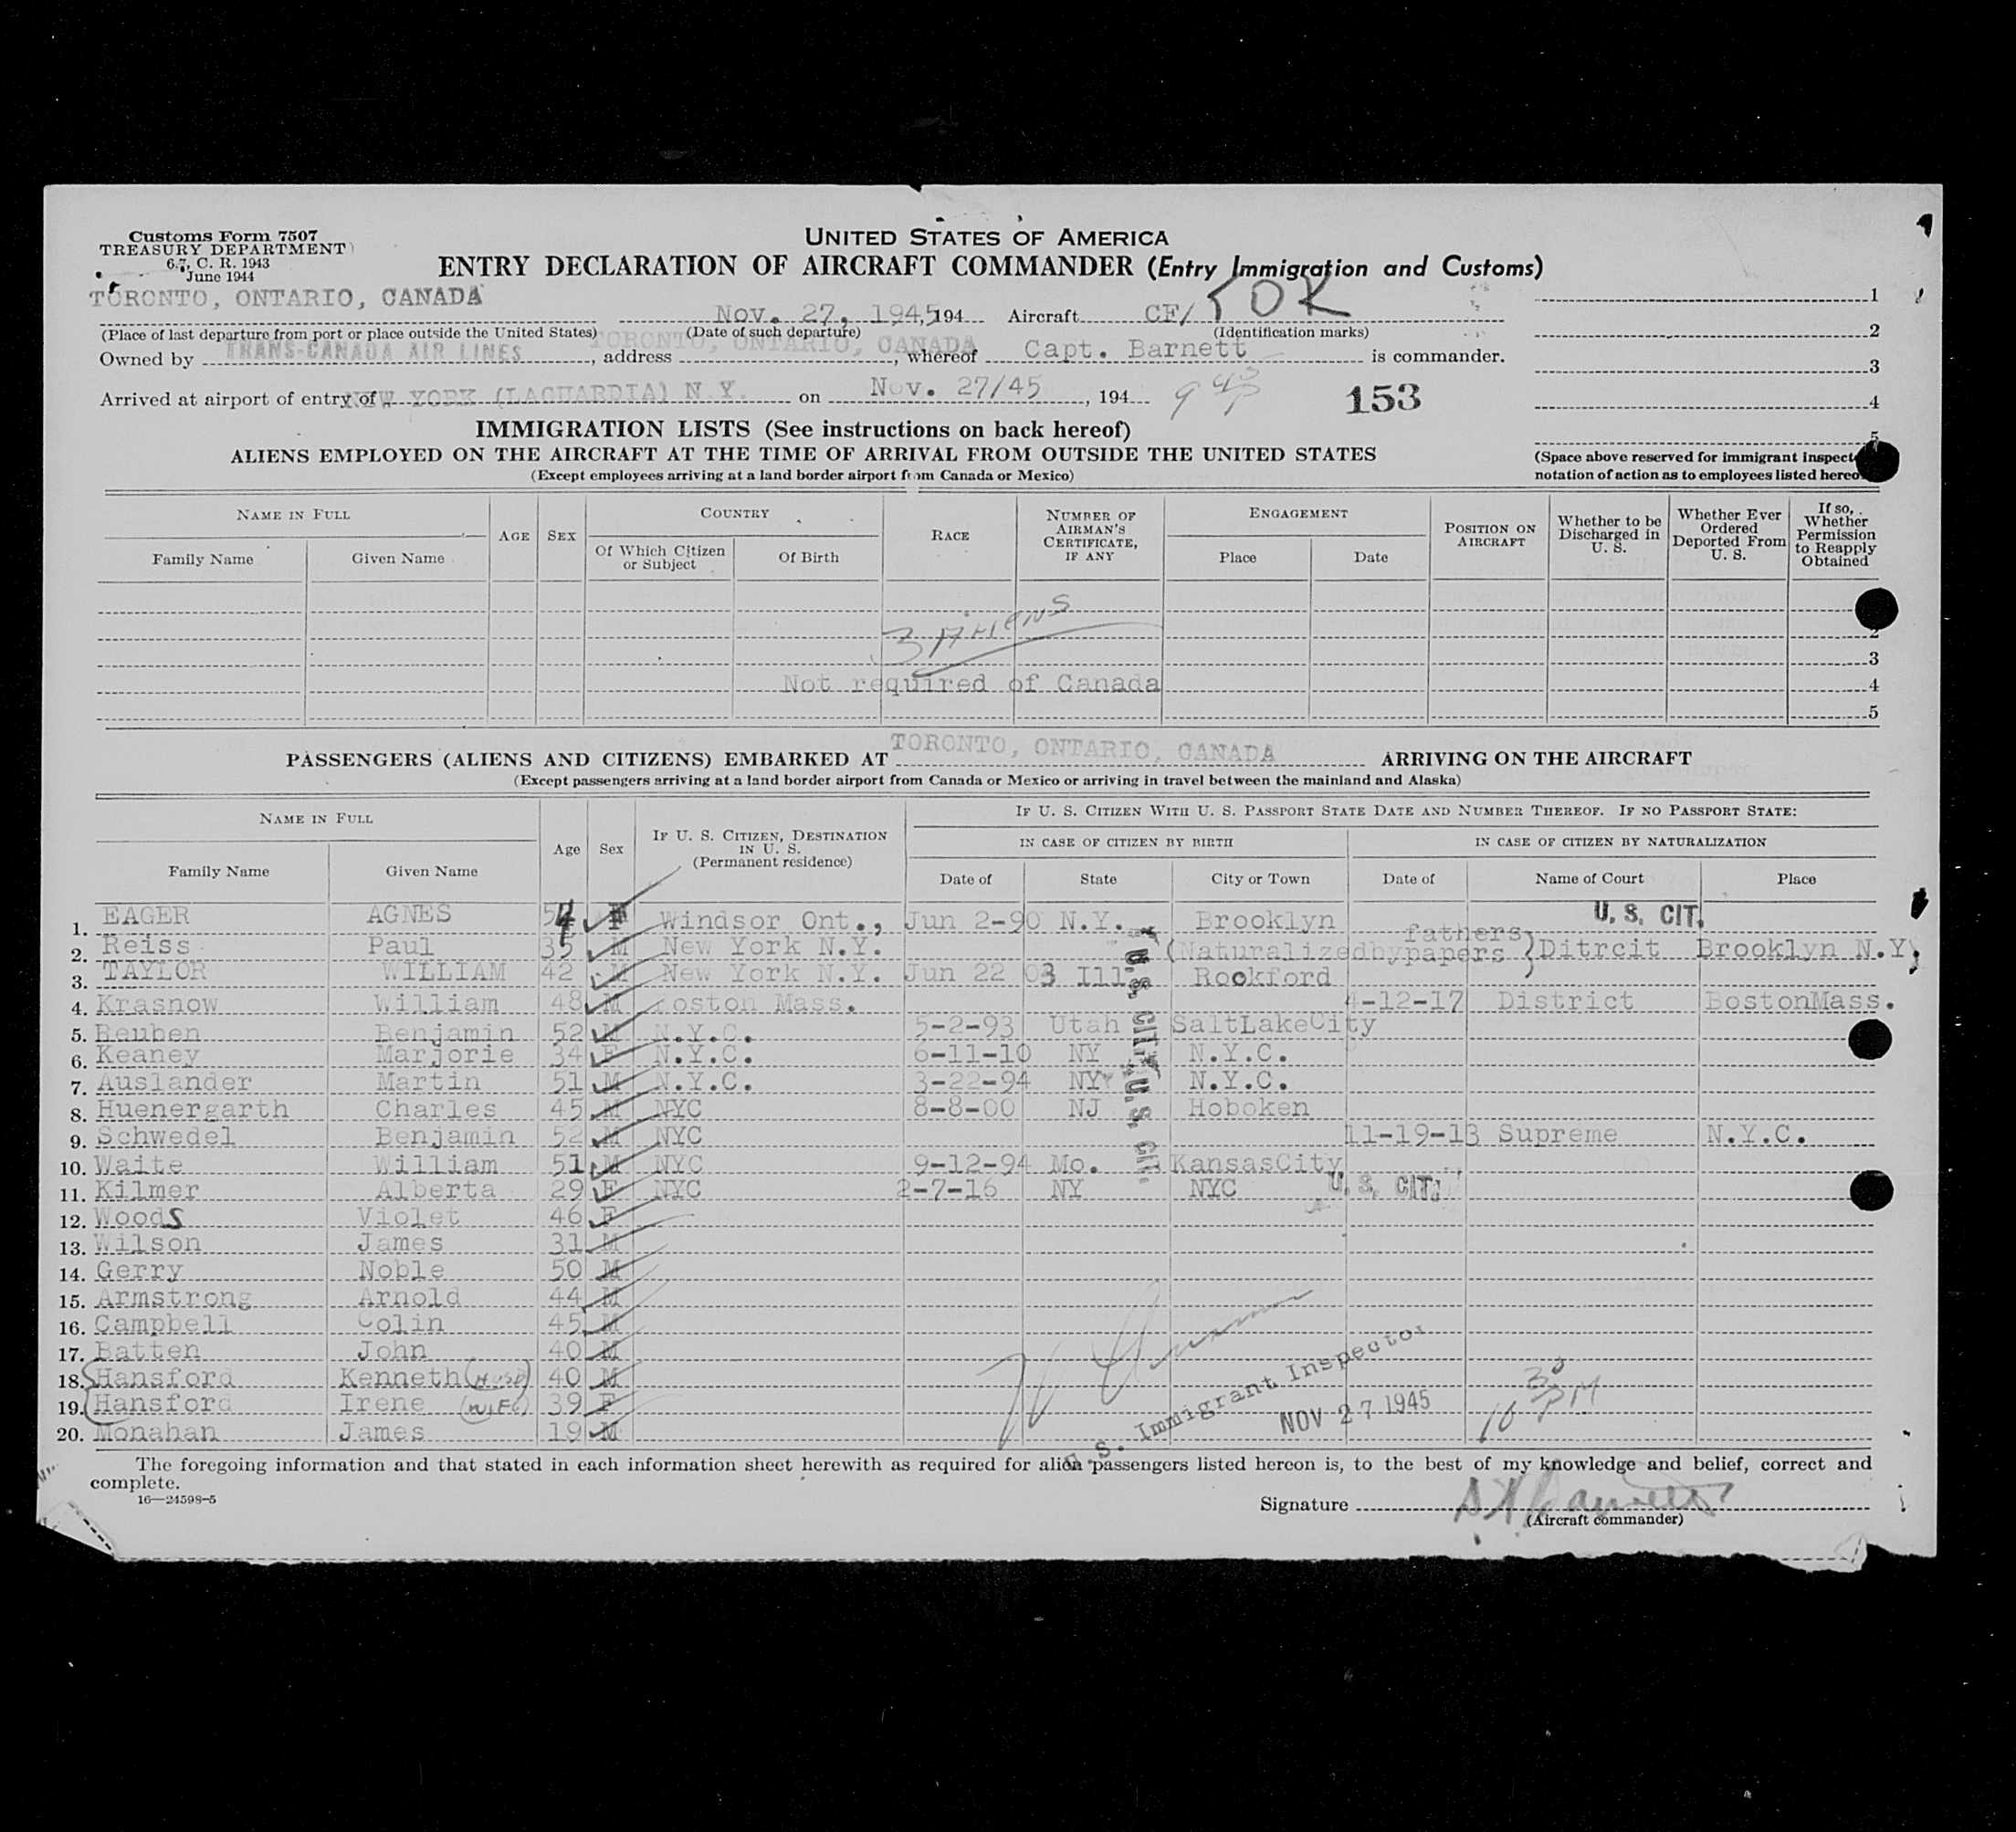 Customs Form 7507
TREASURY DEPARTMENT
6.7, C. R. 1943
June 1944
UNITED STATES OF AMERICA
ENTRY DECLARATION OF AIRCRAFT COMMANDER (Entry Immigration and Customs)
TORONTO, ONTARIO, CANADA Nov. 27, 1945, 194 Aircraft CF/TOK
(Place of last departure from port or place outside the United States) (Date of such departure) (Identification marks)
Owned by TRANS-CANADA AIR LINES, address TORONTO, ONTARIO, CANADA, whereof Capt. Barnett is commander.
Arrived at airport of entry of NEW YORK (LAGUARDIA) N.Y. on Nov. 27/45, 194 153
1
2
3
4
5
IMMIGRATION LISTS (See instructions on back hereof)
ALIENS EMPLOYED ON THE AIRCRAFT AT THE TIME OF ARRIVAL FROM OUTSIDE THE UNITED STATES
(Except employees arriving at a land border airport from Canada or Mexico)
(Space above reserved for immigrant inspect
notation of action as to employees listed hereo
NAME IN FULL AGE SEX COUNTRY RACE NUMBER OF AIRMAN'S CERTIFICATE, IF ANY ENGAGEMENT POSITION ON AIRCRAFT Whether to be Discharged in U. S. Whether Ever Ordered Deported From U. S. If so, Whether Permission to Reapply Obtained
Family Name Given Name Of Which Citizen or Subject Of Birth Place Date
2
3
Not required of Canada 4
5
PASSENGERS (ALIENS AND CITIZENS) EMBARKED AT TORONTO, ONTARIO, CANADA ARRIVING ON THE AIRCRAFT
(Except passengers arriving at a land border airport from Canada or Mexico or arriving in travel between the mainland and Alaska)
NAME IN FULL Age Sex IF U. S. CITIZEN, DESTINATION IN U. S. (Permanent residence) IF U. S. CITIZEN WITH U. S. PASSPORT STATE DATE AND NUMBER THEREOF. IF NO PASSPORT STATE:
IN CASE OF CITIZEN BY BIRTH IN CASE OF CITIZEN BY NATURALIZATION
Family Name Given Name Date of State City or Town Date of Name of Court Place
1. EAGER AGNES 54 F Windsor Ont., Jun 2-90 N.Y. Brooklyn U. S. CIT.
2. Reiss Paul 35 M New York N.Y. (Naturalizedbypapers fathers) Ditrcit Brooklyn N.Y.
3. TAYLOR WILLIAM 42 M New York N.Y. Jun 22 03 Ill Rockford
4. Krasnow William 48 M Boston Mass. 4-12-17 District BostonMass.
5. Reuben Benjamin 52 M N.Y.C. 5-2-93 Utah SaltLakeCity
6. Keaney Marjorie 34 F N.Y.C. 6-11-10 NY N.Y.C.
7. Auslander Martin 51 M N.Y.C. 3-22-94 NY N.Y.C.
8. Huenergarth Charles 45 M NYC 8-8-00 NJ Hoboken
9. Schwedel Benjamin 52 M NYC 11-19-13 Supreme N.Y.C.
10. Waite William 51 M NYC 9-12-94 Mo. KansasCity
11. Kilmer Alberta 29 F NYC 2-7-16 NY NYC U. S. CIT.
U. S. CIT.
U. S. CIT.
12. Woods Violet 46 F
13. Wilson James 31 M
14. Gerry Noble 50 M
15. Armstrong Arnold 44 M
16. Campbell Colin 45 M
17. Batten John 40 M
18. Hansford Kenneth (HUSB) 40 M
19. Hansford Irene (WIFE) 39 F
20. Monahan James 19 M
U. S. Immigrant Inspector
NOV 27 1945
10 30 PM
The foregoing information and that stated in each information sheet herewith as required for alien passengers listed hereon is, to the best of my knowledge and belief, correct and
complete.
16—24598-5
Signature
(Aircraft commander)